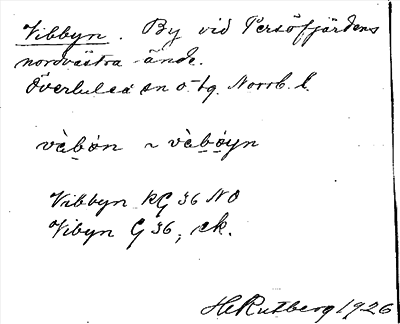 Vibbyn. By vid Persöfjärdens
nordvästra ände.
Överluleå sn o. tg. Norrb. l.
vèbøn ~ vèbøyn
Vibbyn RG 36 NO
Vibyn G 36, ek.
HRutberg 1926